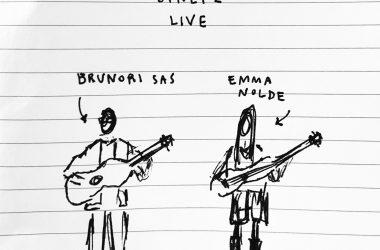 LIVE
BRUNORI SAS
EMMA
NOLDE